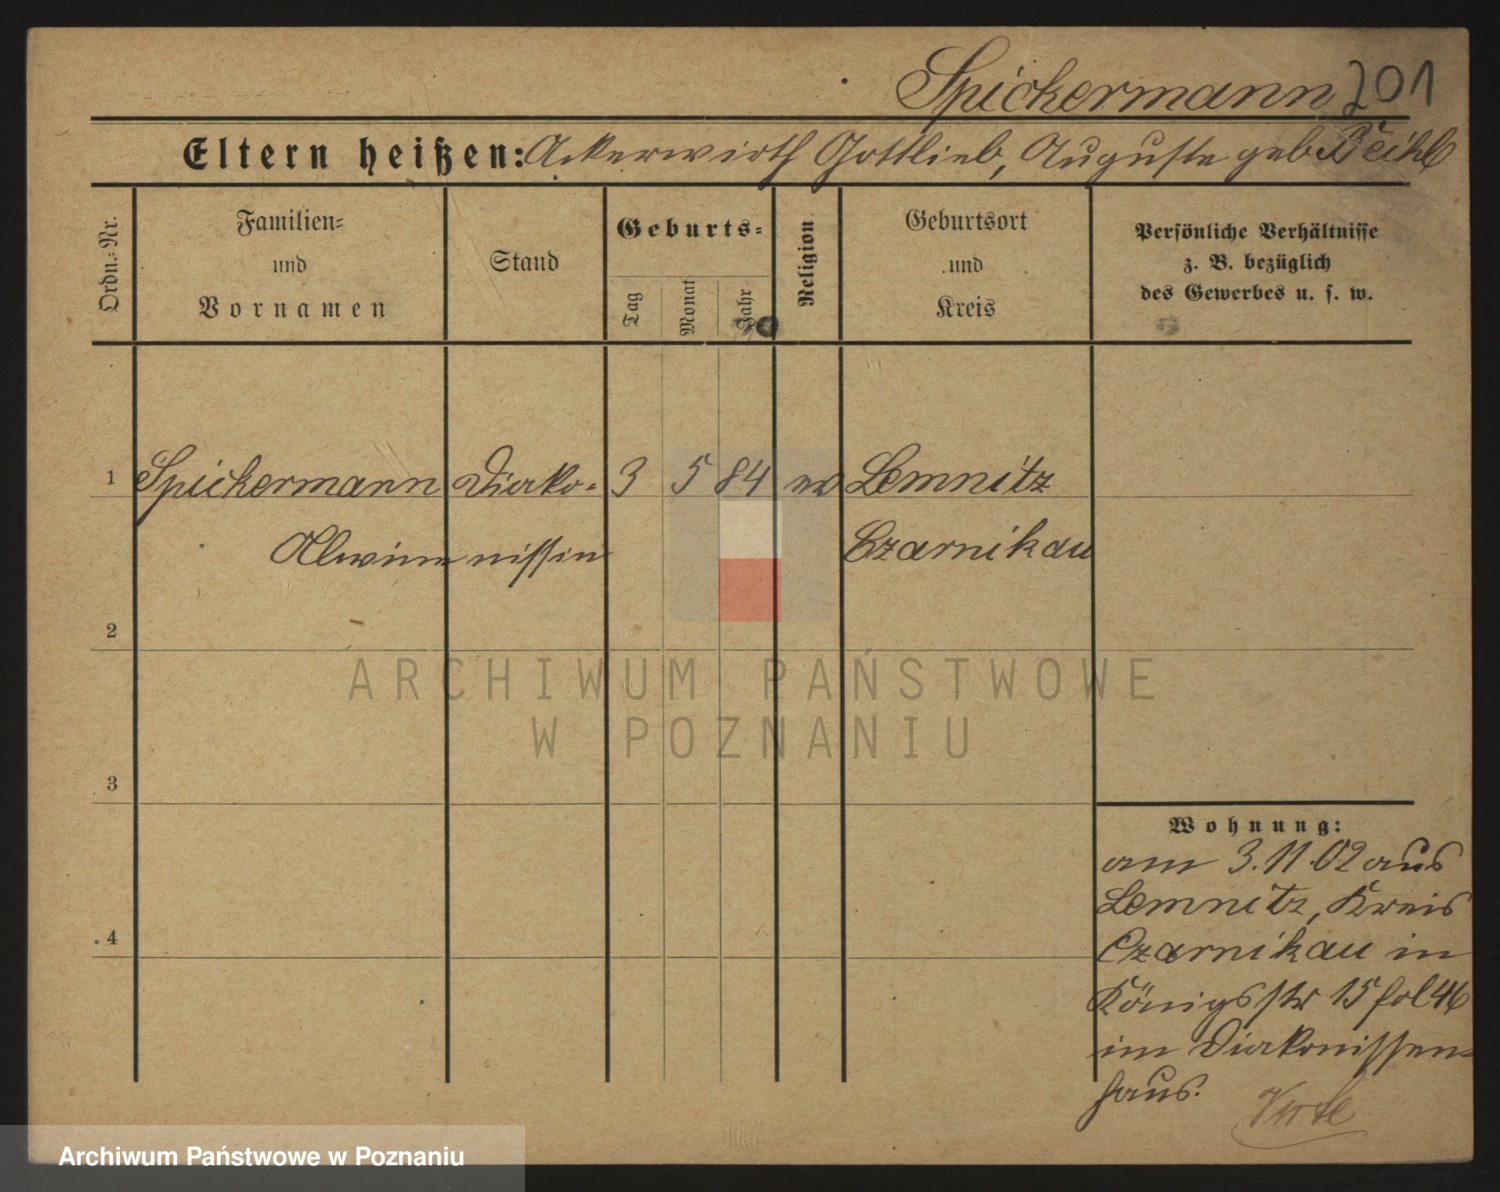 Spickermann 201
Eltern heißen: Ackerwirth Gottlieb, Auguste geb
Ordn.=Nr.
Familien=
und
Vornamen
Stand
Geburts=
Tag
Monat
Jahr
Religion
Geburtsort
und
Kreis
Persönliche Verhältnisse
z. B. bezüglich
des Gewerbes u. s. w.
1 Spickermann Diako- 3 5 84 ev Lemnitz
Alwine nissin Czarnikau
2
3
4
Wohnung:
am 3.11.02 aus
Lemnitz, Kreis
Czarnikau in
Königsstr 15 fol 46
im Diakonissen-
haus.
ARCHIWUM PAŃSTWOWE
W POZNANIU
Archiwum Państwowe w Poznaniu